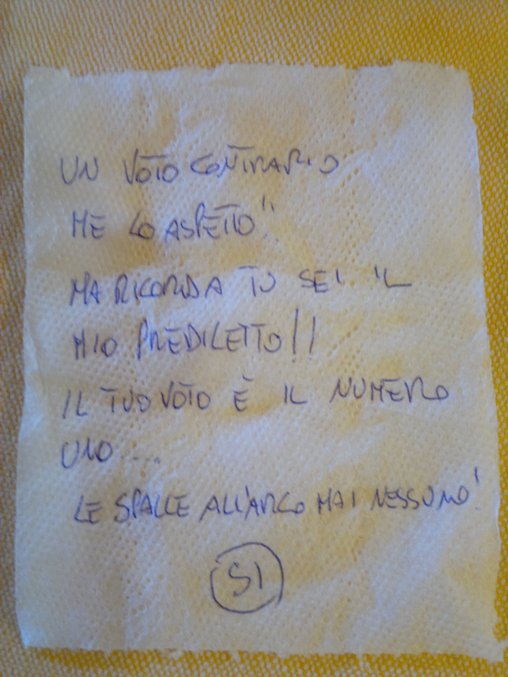 UN VOTO CONTRARIO
ME LO ASPETTO!!
MA RICORDA TU SEI IL
MIO PREDILETTO!!
IL TUO VOTO È IL NUMERO
UNO....
LE SPALLE ALL'ARCO MAI NESSUNO!
SI